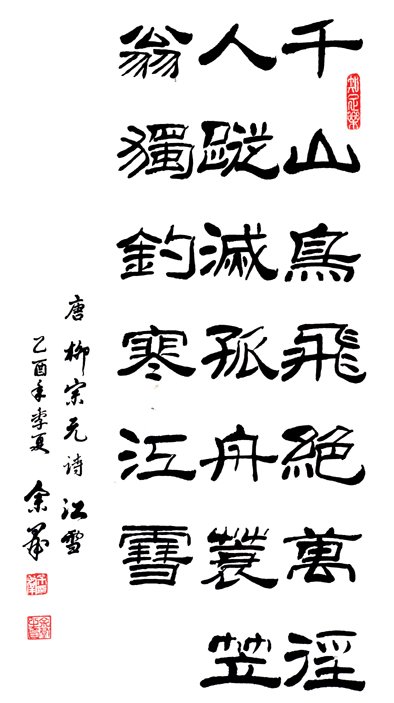 千山鳥飛絕萬徑
人蹤滅孤舟蓑笠
翁獨釣寒江雪
唐柳宗元詩江雪
乙酉年季夏余